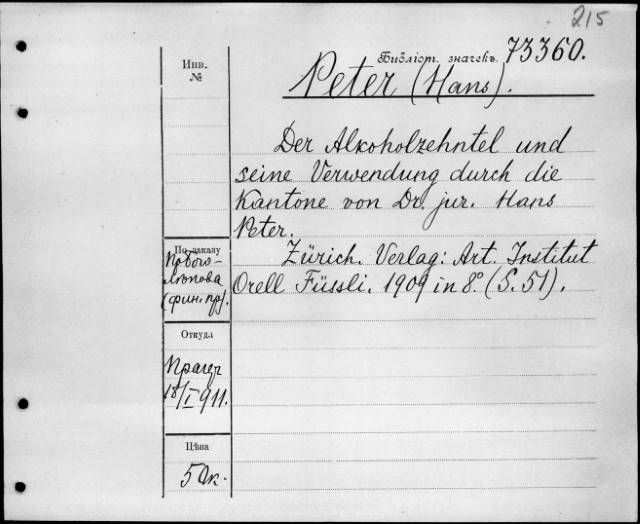 215
Библіот. значекъ. 73360.
Инв.
№
Peter (Hans).
Der Alkoholzehntel und
seine Verwendung durch die
Kantone von Dr. jur. Hans
Peter.
Zürich. Verlag: Art. Institut
Orell Füssli. 1909 in 8º. (S. 51).
По заказу
Побого-
лѣпова
(фин. пр).
Откуда
Прагеръ
18/I 911.
Цѣна
50к.